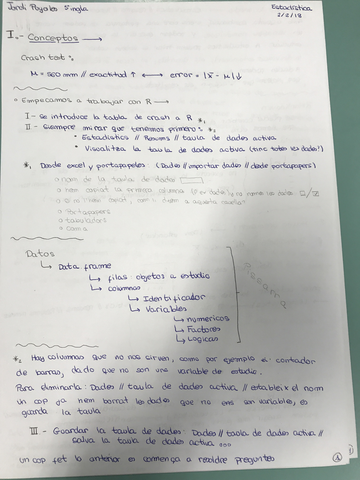 Jordi Pujales Singla
Estadística
2/2/18
I.- Conceptos →
Crash test:
μ = 260 mm // exactitud ↑ ↔ error = |x̄ - μ| ↓
- Empezamos a trabajar con R →
I - se introduce la tabla de crash a R *₁
II - siempre mirar que tenemos primero: *₂
• Estadístics // Resums // taula de dades activa
• Visualitza la taula de dades activa (tinc totes les dades?)
*₁ Desde excel y portapapeles (Dades // importar dades // desde portapapers)
□ nom de la taula de dades
□ Portapapers
□ tabuladors
□ Coma
Datos
↳ Data frame
↳ filas objetos a estudio
↳ columnas
↳ Identificador
↳ Variables
↳ numéricos
↳ Factores
↳ Lógicas
*₂ Hay columnas que no nos sirven, como por ejemplo el contador
de barras, dado que no son una variable de estudio.
Para eliminarla: Dades // taula de dades activa // estableix el nom
un cop ja hem borrat les dades que no ens son variables, es
guarda la taula
III - Guardar la taula de dades: Dades // taula de dades activa //
salva la taula de dades activa ...
un cop fet lo anterior es comença a resoldre preguntes